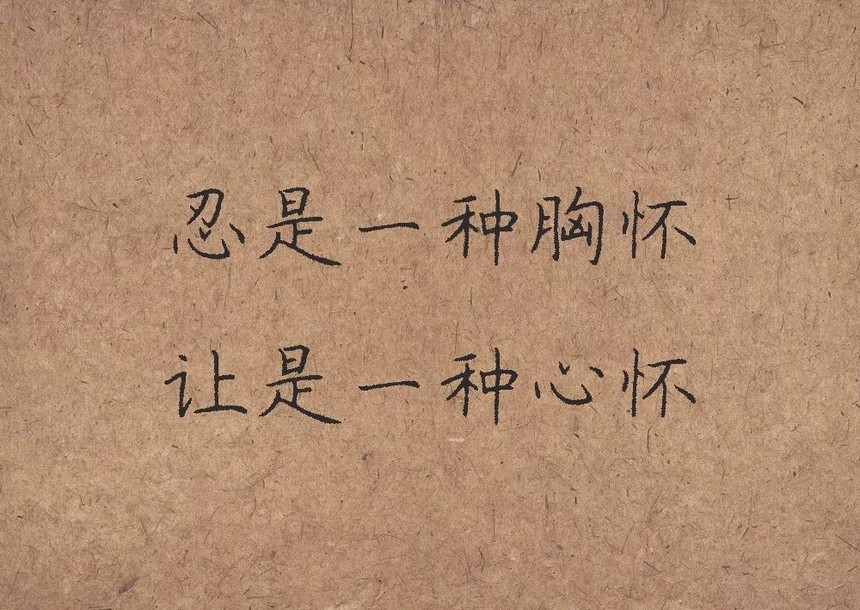 忍是一种胸怀
让是一种心怀